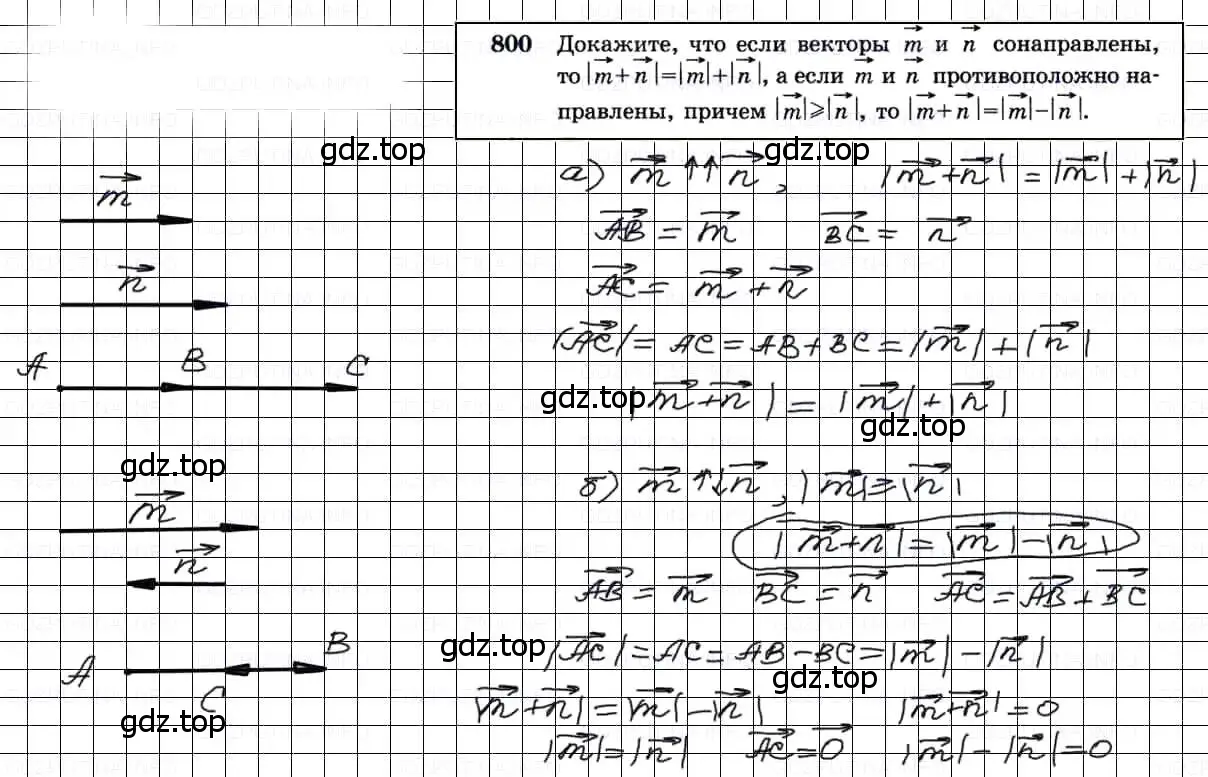 800 Докажите, что если векторы m⃗ и n⃗ сонаправлены,
то |m⃗+n⃗|=|m⃗|+|n⃗|, а если m⃗ и n⃗ противоположно на-
правлены, причем |m⃗|⩾|n⃗|, то |m⃗+n⃗|=|m⃗|−|n⃗|.
gdz.top gdz.top
а) m⃗ ↑↑ n⃗, |m⃗+n⃗| = |m⃗|+|n⃗|
m⃗
AB⃗ = m⃗ BC⃗ = n⃗
n⃗
AC⃗ = m⃗+n⃗
|AC⃗| = AC = AB+BC = |m⃗|+|n⃗|
A B C
gdz.top |m⃗+n⃗| = |m⃗|+|n⃗|
gdz.top
gdz.top
б) m⃗ ↑↓ n⃗, |m⃗|⩾|n⃗|
m⃗
|m⃗+n⃗| = |m⃗|−|n⃗|
n⃗
AB⃗ = m⃗ BC⃗ = n⃗ AC⃗ = AB⃗+BC⃗
A C B
gdz.top |AC⃗| = AC = AB−BC = |m⃗|−|n⃗|
gdz.top
gdz.top |m⃗+n⃗| = |m⃗|−|n⃗| |m⃗+n⃗| = 0
|m⃗| = |n⃗| AC⃗ = 0⃗ |m⃗|−|n⃗| = 0